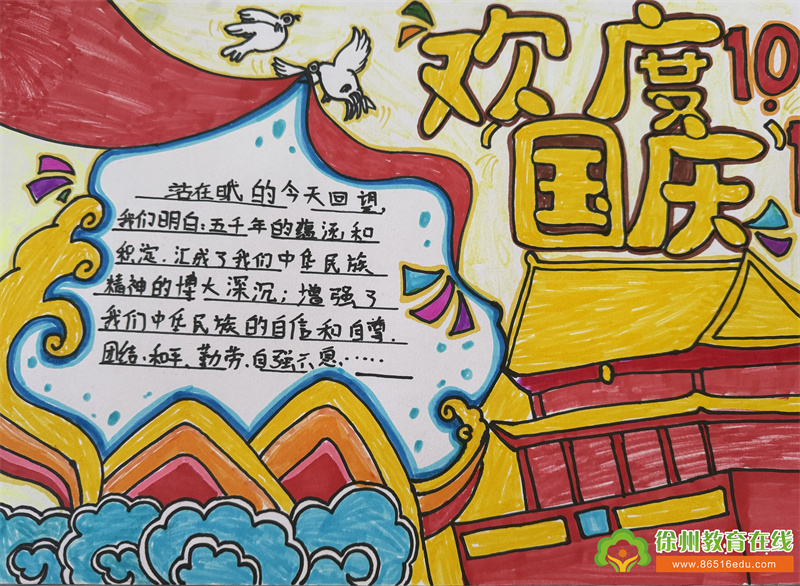 欢度
国庆
10.1
站在戕的今天回望,
我们明白:五千年的蕴涵和
积淀,汇成了我们中华民族
精神的博大深沉;增强了
我们中华民族的自信和自尊.
团结、和平、勤劳、自强不息……
徐州教育在线
www.86516edu.com